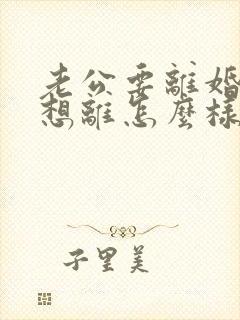 老公要離婚
想離怎麼樣
子里美